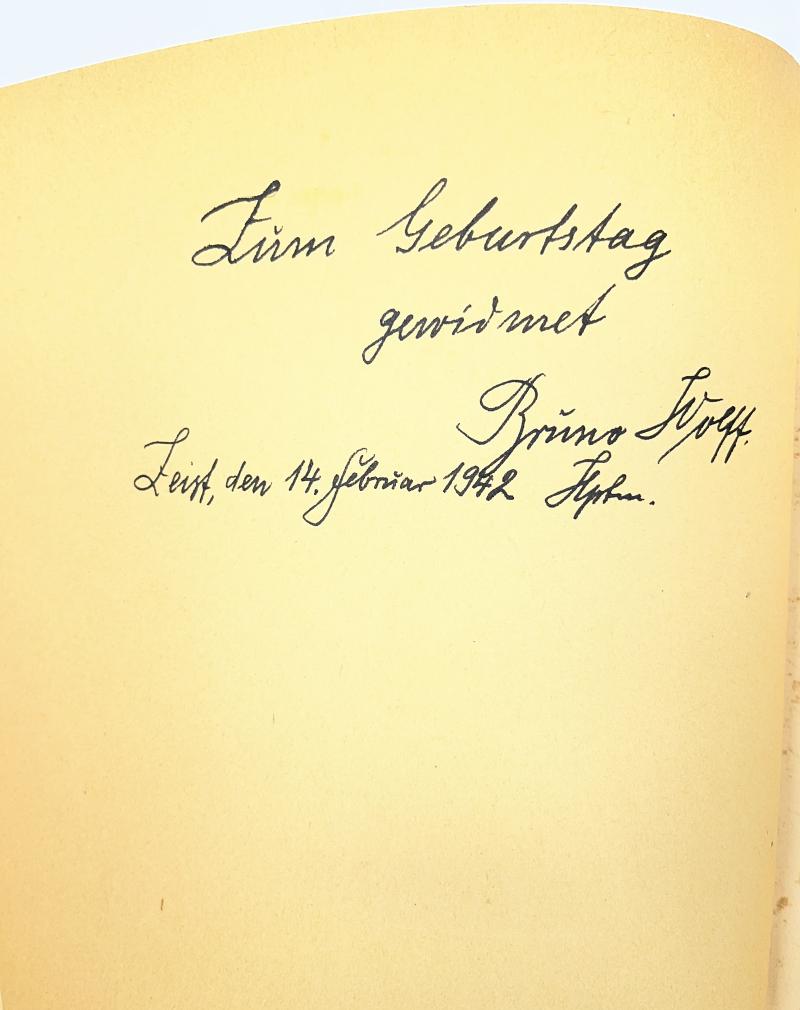 Zum Geburtstag
gewidmet
Bruno Wolff.
Zeist, den 14. Februar 1942 Hptm.